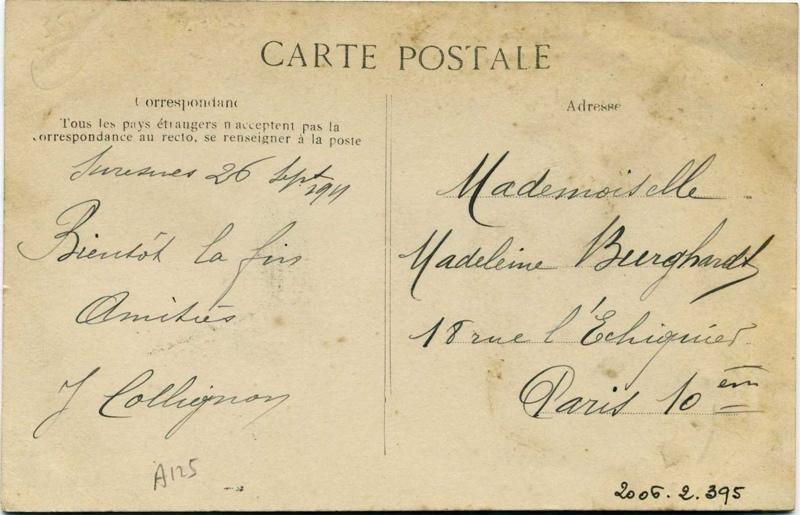 CARTE POSTALE
Correspondance
Tous les pays étrangers n'acceptent pas la
correspondance au recto, se renseigner à la poste
Suresnes 26 Sept 1911
Bientôt la fin
Amitiés
J Collignon
A125
Adresse
Mademoiselle
Madeleine Burghardt
18 rue l'Echiquier
Paris 10ème
2006.2.395